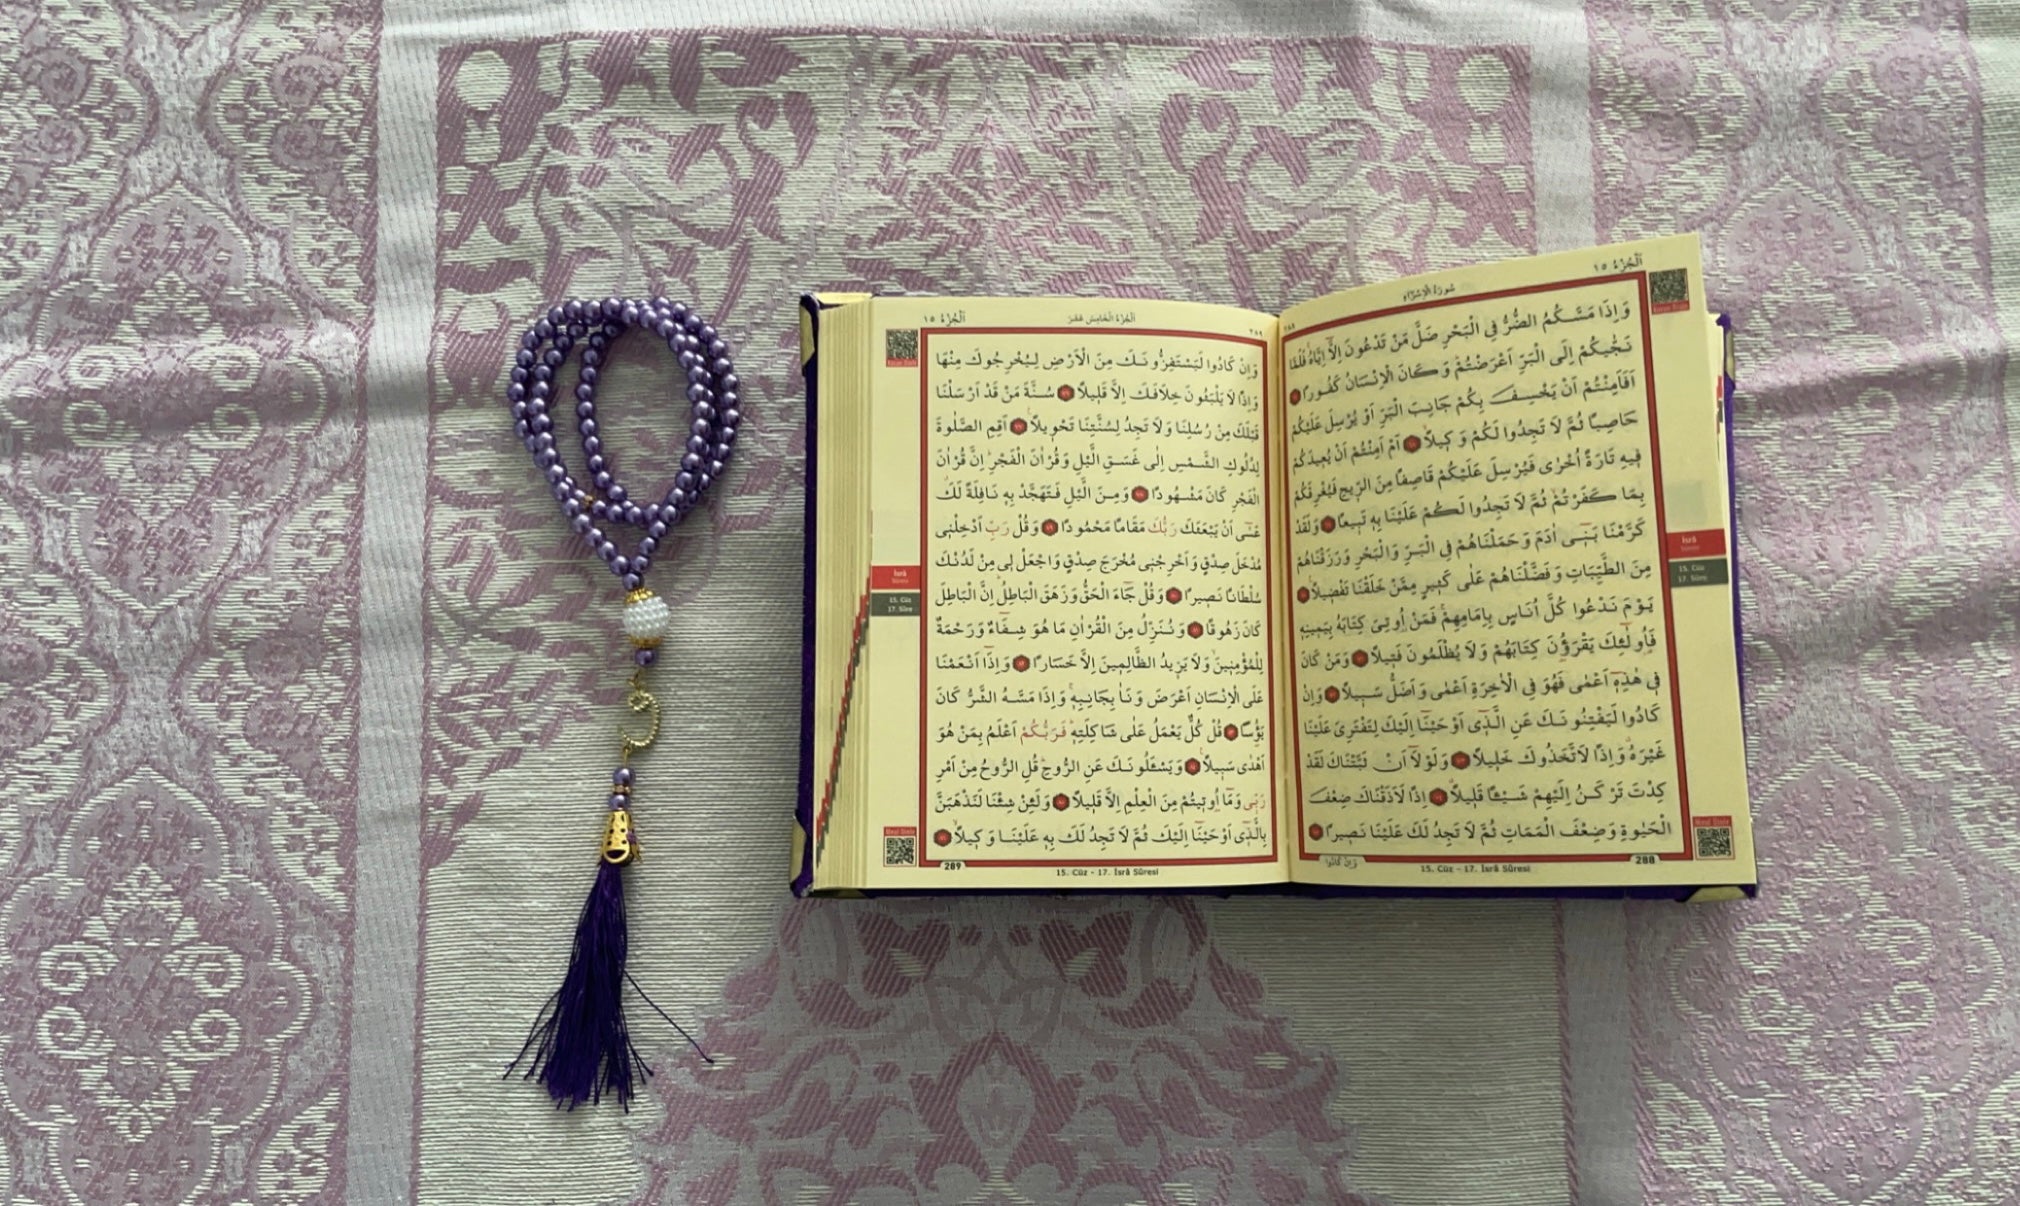 اَلْجُزْءُ ١٥
سُورَةُ الْاِسْرَاءِ
٢٨٨
وَاِذَا مَسَّكُمُ الضُّرُّ فِي الْبَحْرِ ضَلَّ مَنْ تَدْعُونَ اِلَّٓا اِيَّاهُۚ فَلَمَّا
نَجّٰيكُمْ اِلَى الْبَرِّ اَعْرَضْتُمْۜ وَكَانَ الْاِنْسَانُ كَفُورًا
اَفَاَمِنْتُمْ اَنْ يَخْسِفَ بِكُمْ جَانِبَ الْبَرِّ اَوْ يُرْسِلَ عَلَيْكُمْ
حَاصِبًا ثُمَّ لَا تَجِدُوا لَكُمْ وَكٖيلًاۙ اَمْ اَمِنْتُمْ اَنْ يُعٖيدَكُمْ
فٖيهِ تَارَةً اُخْرٰى فَيُرْسِلَ عَلَيْكُمْ قَاصِفًا مِنَ الرّٖيحِ فَيُغْرِقَكُمْ
بِمَا كَفَرْتُمْۙ ثُمَّ لَا تَجِدُوا لَكُمْ عَلَيْنَا بِهٖ تَبٖيعًا وَلَقَدْ
كَرَّمْنَا بَنٖٓي اٰدَمَ وَحَمَلْنَاهُمْ فِي الْبَرِّ وَالْبَحْرِ وَرَزَقْنَاهُمْ
مِنَ الطَّيِّبَاتِ وَفَضَّلْنَاهُمْ عَلٰى كَثٖيرٍ مِمَّنْ خَلَقْنَا تَفْضٖيلًا
يَوْمَ نَدْعُوا كُلَّ اُنَاسٍ بِاِمَامِهِمْۚ فَمَنْ اُوتِيَ كِتَابَهُ بِيَمٖينِهٖ
فَاُولٰٓئِكَ يَقْرَؤُ۫نَ كِتَابَهُمْ وَلَا يُظْلَمُونَ فَتٖيلًا وَمَنْ كَانَ
فٖي هٰذِهٖٓ اَعْمٰى فَهُوَ فِي الْاٰخِرَةِ اَعْمٰى وَاَضَلُّ سَبٖيلًا وَاِنْ
كَادُوا لَيَفْتِنُونَكَ عَنِ الَّذٖٓي اَوْحَيْنَٓا اِلَيْكَ لِتَفْتَرِيَ عَلَيْنَا
غَيْرَهُۗ وَاِذًا لَاتَّخَذُوكَ خَلٖيلًا وَلَوْلَٓا اَنْ ثَبَّتْنَاكَ لَقَدْ
كِدْتَ تَرْكَنُ اِلَيْهِمْ شَيْـًٔا قَلٖيلًاۗ اِذًا لَاَذَقْنَاكَ ضِعْفَ
الْحَيٰوةِ وَضِعْفَ الْمَمَاتِ ثُمَّ لَا تَجِدُ لَكَ عَلَيْنَا نَصٖيرًا
288
وَاِنْ كَادُوا
15. Cüz - 17. İsrâ Sûresi
İsrâ
Sûresi
15. Cüz
17. Sûre
Meal Dinle
٢٨٩
اَلْجُزْءُ الْخَامِسَ عَشَرَ
اَلْجُزْءُ ١٥
وَاِنْ كَادُوا لَيَسْتَفِزُّونَكَ مِنَ الْاَرْضِ لِيُخْرِجُوكَ مِنْهَا
وَاِذًا لَا يَلْبَثُونَ خِلَافَكَ اِلَّا قَلٖيلًا سُنَّةَ مَنْ قَدْ اَرْسَلْنَا
قَبْلَكَ مِنْ رُسُلِنَا وَلَا تَجِدُ لِسُنَّتِنَا تَحْوٖيلًا۟ اَقِمِ الصَّلٰوةَ
لِدُلُوكِ الشَّمْسِ اِلٰى غَسَقِ الَّيْلِ وَقُرْاٰنَ الْفَجْرِۜ اِنَّ قُرْاٰنَ
الْفَجْرِ كَانَ مَشْهُودًا وَمِنَ الَّيْلِ فَتَهَجَّدْ بِهٖ نَافِلَةً لَكَۗ
عَسٰٓى اَنْ يَبْعَثَكَ رَبُّكَ مَقَامًا مَحْمُودًا وَقُلْ رَبِّ اَدْخِلْنٖي
مُدْخَلَ صِدْقٍ وَاَخْرِجْنٖي مُخْرَجَ صِدْقٍ وَاجْعَلْ لٖي مِنْ لَدُنْكَ
سُلْطَانًا نَصٖيرًا وَقُلْ جَٓاءَ الْحَقُّ وَزَهَقَ الْبَاطِلُۜ اِنَّ الْبَاطِلَ
كَانَ زَهُوقًا وَنُنَزِّلُ مِنَ الْقُرْاٰنِ مَا هُوَ شِفَٓاءٌ وَرَحْمَةٌ
لِلْمُؤْمِنٖينَۙ وَلَا يَزٖيدُ الظَّالِمٖينَ اِلَّا خَسَارًا وَاِذَٓا اَنْعَمْنَا
عَلَى الْاِنْسَانِ اَعْرَضَ وَنَاٰ بِجَانِبِهٖۚ وَاِذَا مَسَّهُ الشَّرُّ كَانَ
يَؤُ۫سًا قُلْ كُلٌّ يَعْمَلُ عَلٰى شَاكِلَتِهٖۜ فَرَبُّكُمْ اَعْلَمُ بِمَنْ هُوَ
اَهْدٰى سَبٖيلًا۟ وَيَسْـَٔلُونَكَ عَنِ الرُّوحِۜ قُلِ الرُّوحُ مِنْ اَمْرِ
رَبّٖي وَمَٓا اُوتٖيتُمْ مِنَ الْعِلْمِ اِلَّا قَلٖيلًا وَلَئِنْ شِئْنَا لَنَذْهَبَنَّ
بِالَّذٖٓي اَوْحَيْنَٓا اِلَيْكَ ثُمَّ لَا تَجِدُ لَكَ بِهٖ عَلَيْنَا وَكٖيلًاۙ
289
15. Cüz - 17. İsrâ Sûresi
İsrâ
Sûresi
15. Cüz
17. Sûre
Meal Dinle